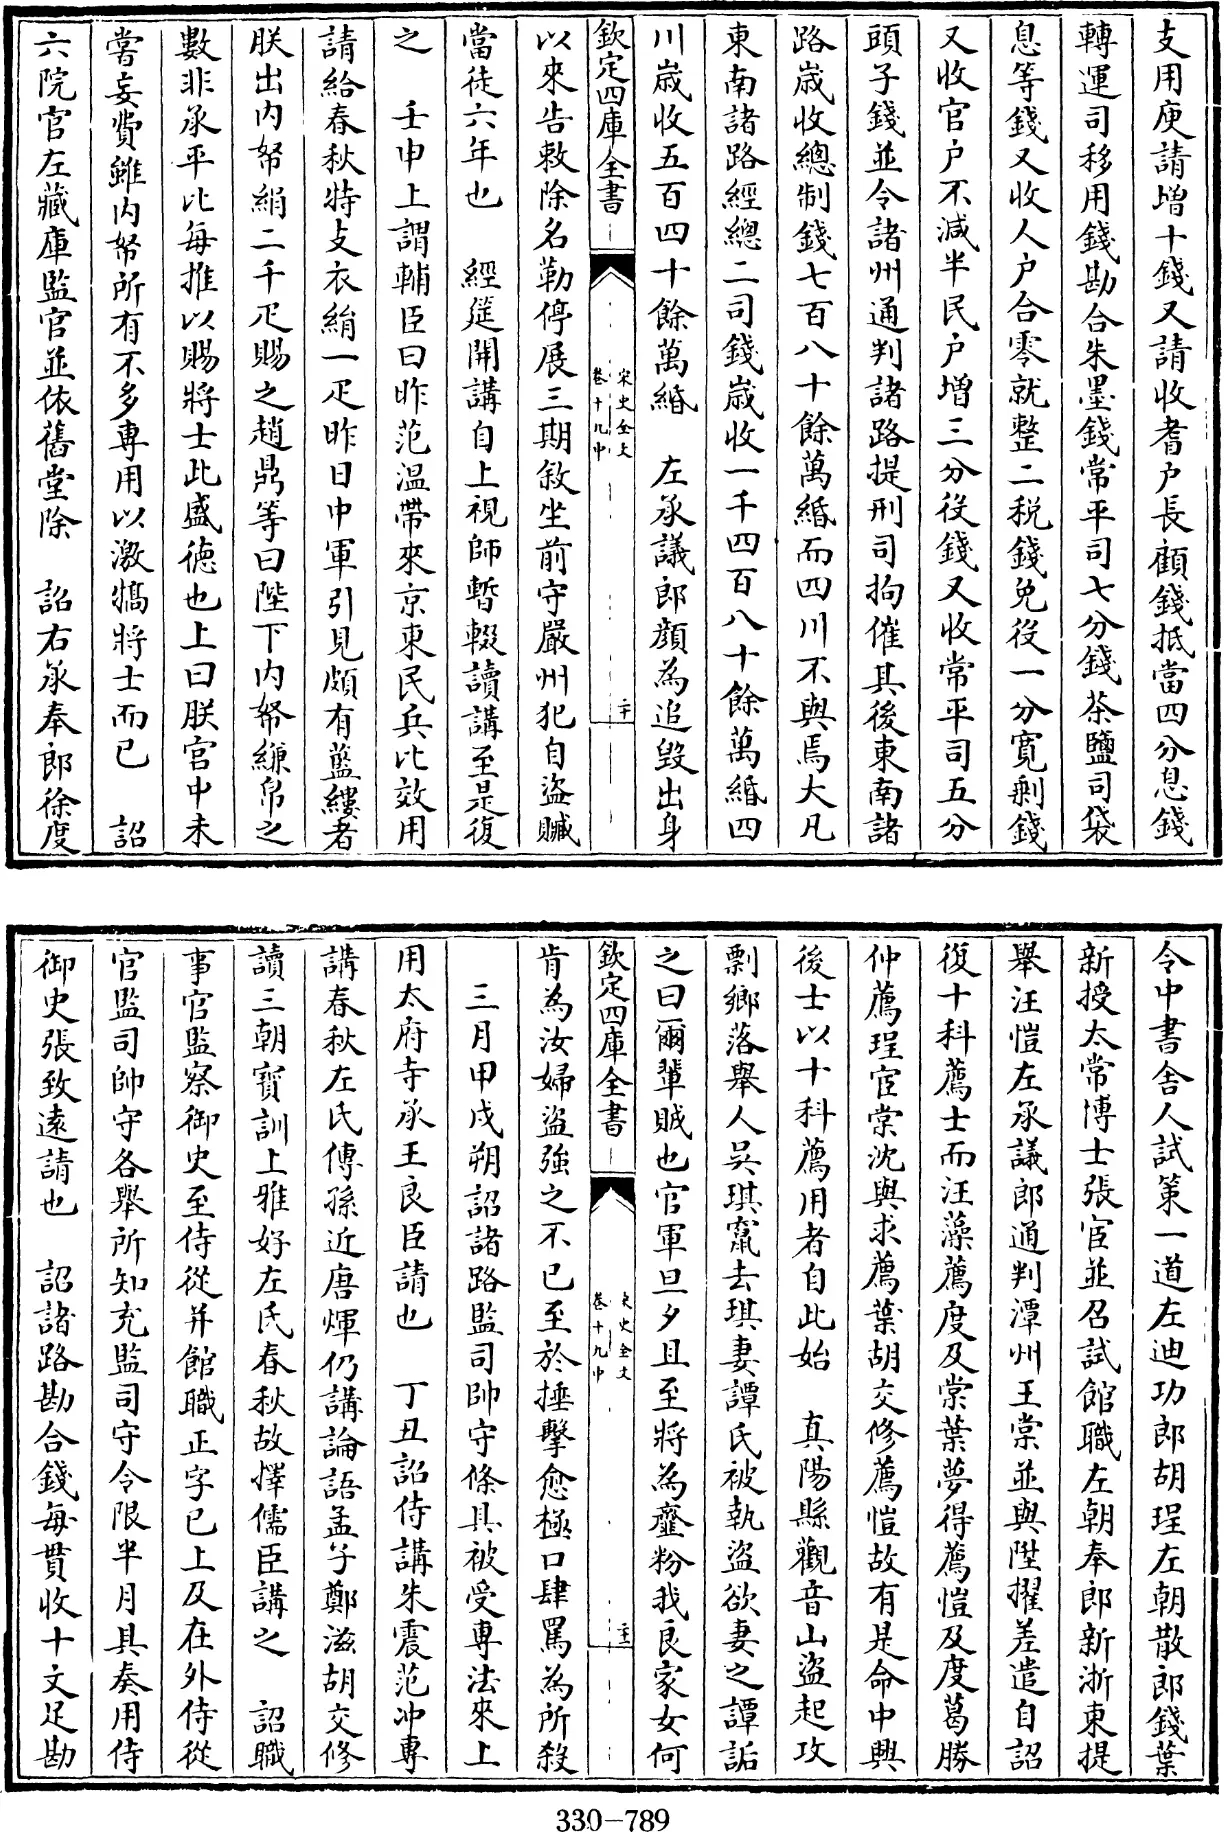 支用庾請增十錢又請收耆户長顧錢抵當四分息錢
轉運司移用錢勘合朱墨錢常平司七分錢茶鹽司袋
息等錢又收人户合零就整二税錢免役一分寛剰錢
又收官户不減半民户增三分役錢又收常平司五分
頭子錢並令諸州通判諸路提刑司拘催其後東南諸
路嵗收總制錢七百八十餘萬緡而四川不與焉大凡
東南諸路經總二司錢嵗收一千四百八十餘萬緡四
川嵗收五百四十餘萬緡　左承議郎顔為追毁出身
欽定四庫全書
宋史全文
卷十九中
二十
以來告敕除名勒停展三期敘坐前守嚴州犯自盜贓
當徒六年也　經筵開講自上視師暫輟讀講至是復
之　壬申上謂輔臣曰昨范温帶來京東民兵比效用
請給春秋特支衣絹一疋昨日中軍引見頗有藍縷者
朕出内帑絹二千疋賜之趙鼎等曰陛下内帑縑帛之
數非承平比每推以賜將士此盛徳也上曰朕宫中未
嘗妄費雖内帑所有不多専用以激犒將士而已　詔
六院官左藏庫監官並依舊堂除　詔右承奉郎徐度
令中書舎人試策一道左迪功郎胡珵左朝散郎錢葉
新授太常博士張宦並召試館職左朝奉郎新浙東提
舉汪愷左承議郎通判潭州王棠並與陞擢差遣自詔
復十科薦士而汪藻薦度及棠葉夢得薦愷及度葛勝
仲薦珵宦棠沈與求薦葉胡交修薦愷故有是命中興
後士以十科薦用者自此始　真陽縣觀音山盜起攻
剽鄉落舉人吴琪竄去琪妻譚氏被執盜欲妻之譚詬
之曰爾輩賊也官軍旦夕且至將為虀粉我良家女何
欽定四庫全書
宋史全文
卷十九中
二十一
肯為汝婦盜強之不已至於捶擊愈極口肆罵為所殺
三月甲戌朔詔諸路監司帥守條具被受専法來上
用太府寺丞王良臣請也　丁丑詔侍講朱震范冲専
講春秋左氏傳孫近唐煇仍講論語孟子鄭滋胡交修
讀三朝寳訓上雅好左氏春秋故擇儒臣講之　詔職
事官監察御史至侍從并館職正字已上及在外侍從
官監司帥守各舉所知充監司守令限半月具奏用侍
御史張致遠請也　詔諸路勘合錢每貫收十文足勘
330-789